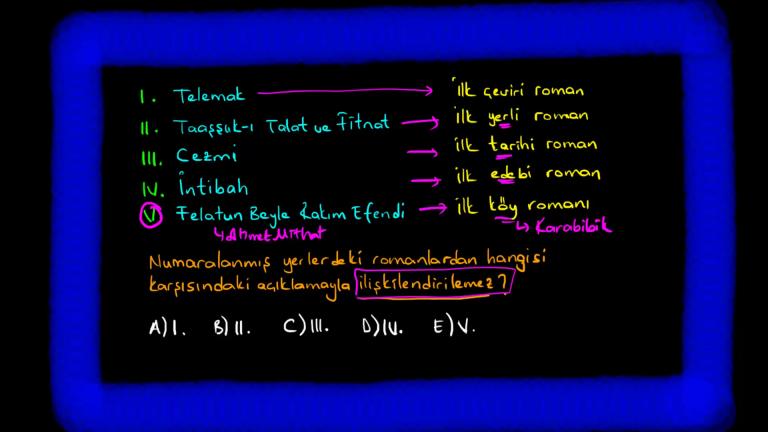 I. Telemak → ilk çeviri roman
II. Taaşşuk-ı Talat ve Fitnat → ilk yerli roman
III. Cezmi → ilk tarihi roman
IV. İntibah → ilk edebi roman
V Felatun Beyle Rakım Efendi → ilk köy romanı
↳Ahmet Mithat ↳ Karabibik
Numaralanmış yerlerdeki romanlardan hangisi
karşısındaki açıklamayla ilişkilendirilemez?
A) I. B) II. C) III. D) IV. E) V.